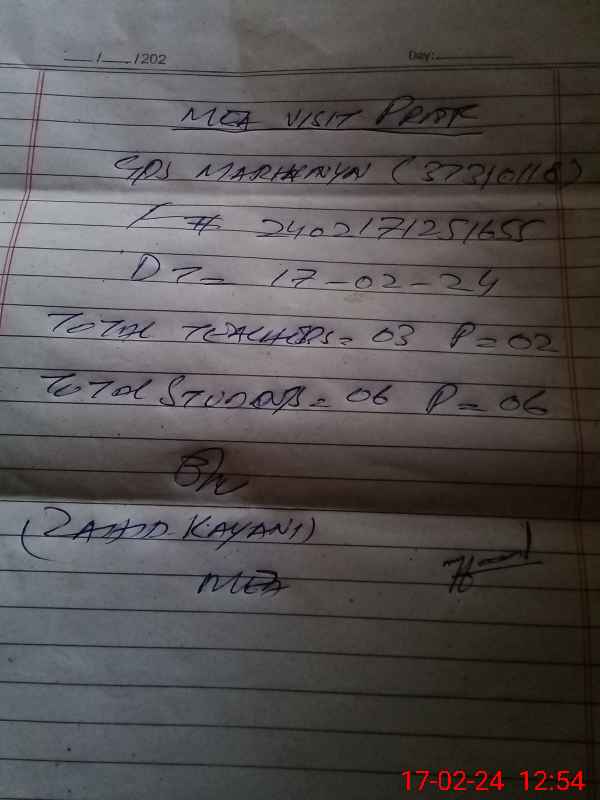 ___/___/202 Day:
MEA VISIT PROOF
GPS MARHENYN (37310116)
F # 2402171251655
DT= 17-02-24
TOTAL TEACHERS= 03 P=02
TOTAL STUDENTS= 06 P=06
(ZAHID KAYANI)
MEA
17-02-24 12:54